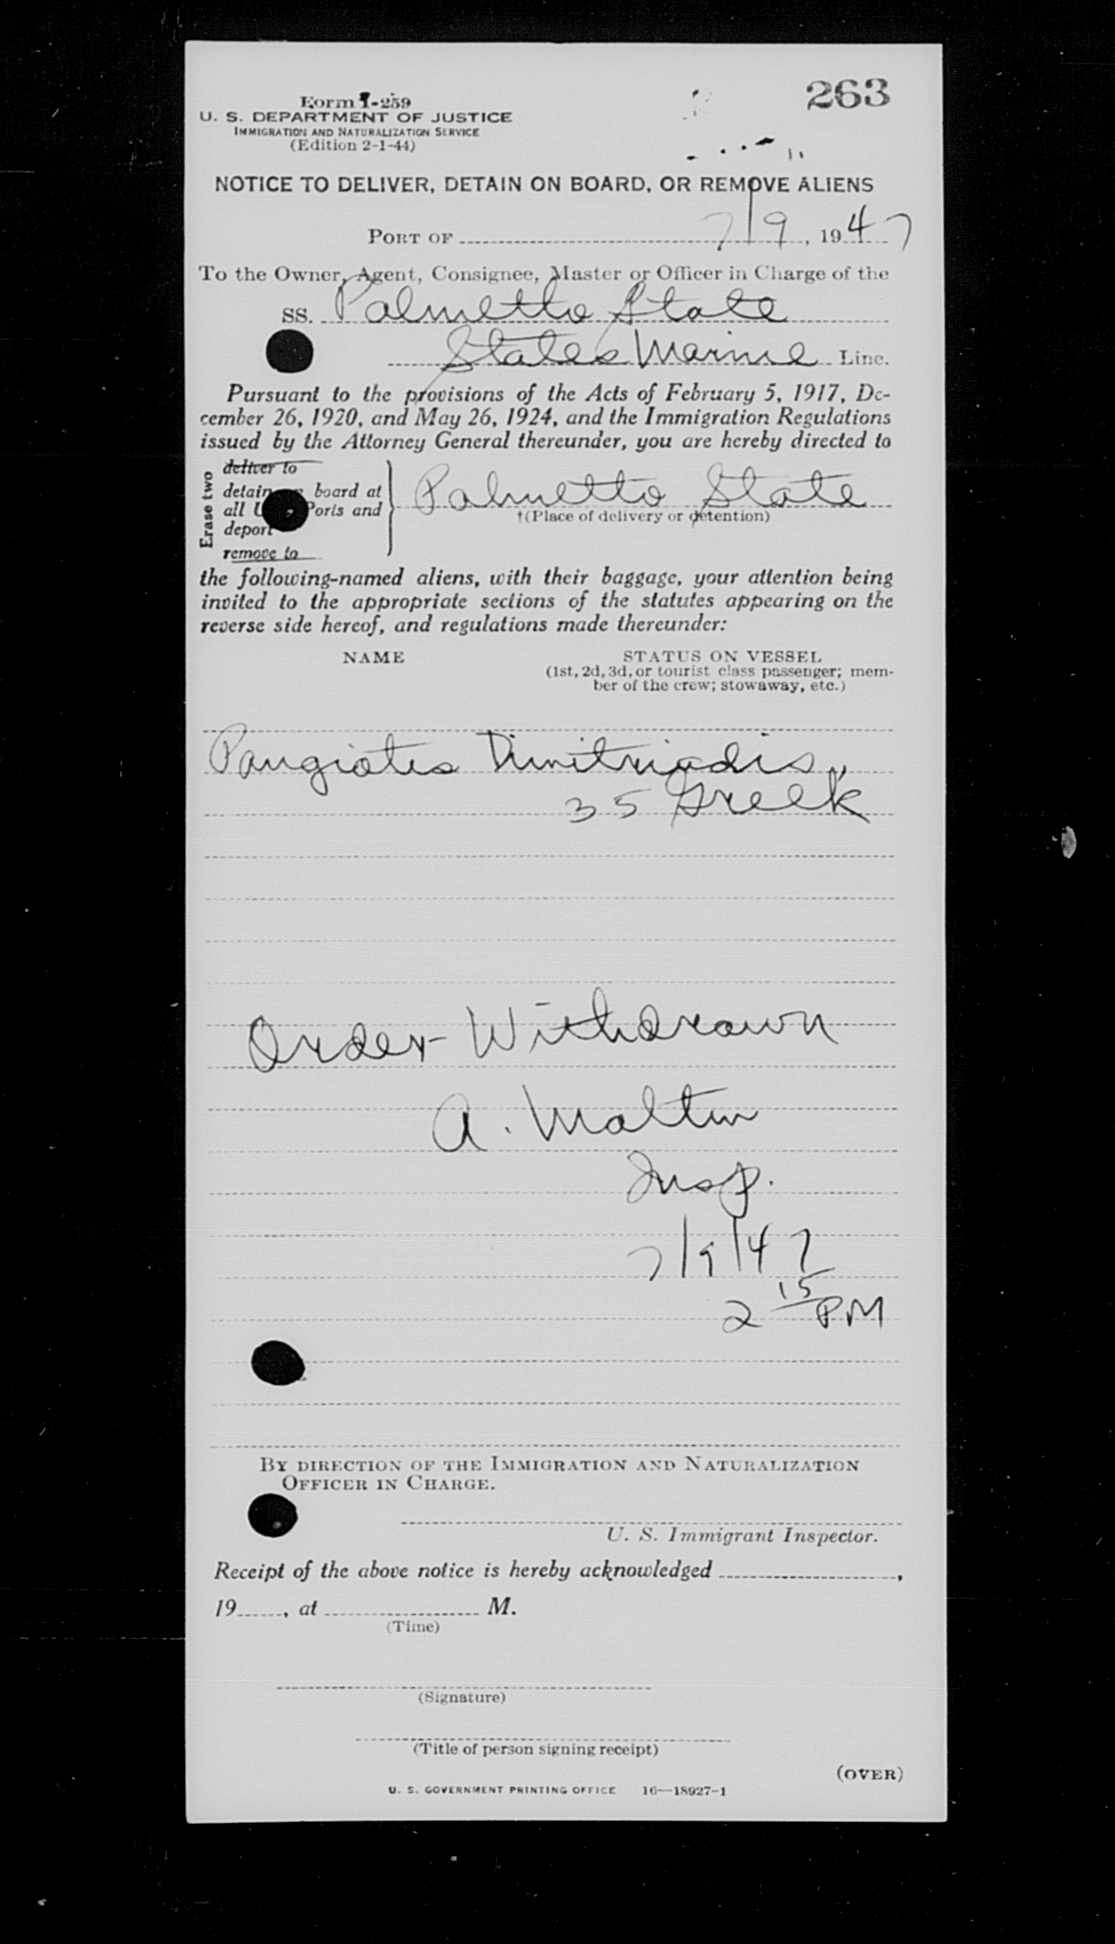 263
Form I-259
U. S. DEPARTMENT OF JUSTICE
IMMIGRATION AND NATURALIZATION SERVICE
(Edition 2-1-44)
NOTICE TO DELIVER, DETAIN ON BOARD, OR REMOVE ALIENS
PORT OF 7/9, 1947
To the Owner, Agent, Consignee, Master or Officer in Charge of the
SS. Palmetto State
States Marine Line.
Pursuant to the provisions of the Acts of February 5, 1917, De-
cember 26, 1920, and May 26, 1924, and the Immigration Regulations
issued by the Attorney General thereunder, you are hereby directed to
Erase two
deliver to
detain board at Palmetto State
all Ports and †(Place of delivery or detention)
deport
remove to
the following-named aliens, with their baggage, your attention being
invited to the appropriate sections of the statutes appearing on the
reverse side hereof, and regulations made thereunder:
NAME STATUS ON VESSEL
(1st, 2d, 3d, or tourist class passenger; mem-
ber of the crew; stowaway, etc.)
Pangiotis Dimitriadis,
35 Greek
Order Withdrawn
A. Maltin
Insp.
7/9/47
2 15 PM
BY DIRECTION OF THE IMMIGRATION AND NATURALIZATION
OFFICER IN CHARGE.
U. S. Immigrant Inspector.
Receipt of the above notice is hereby acknowledged ,
19 , at M.
(Time)
(Signature)
(Title of person signing receipt)
(OVER)
U. S. GOVERNMENT PRINTING OFFICE 16—18927-1